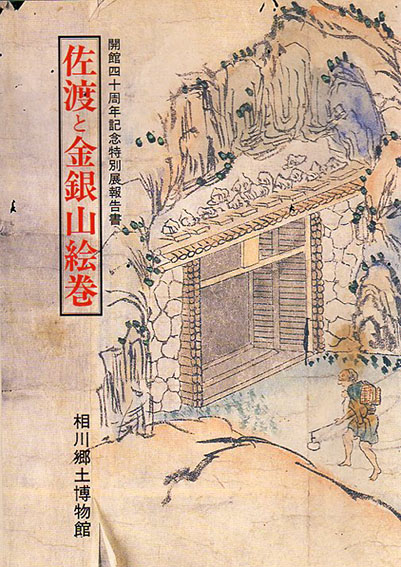 開館四十周年記念特別展報告書
佐渡と金銀山絵巻
相川郷土博物館